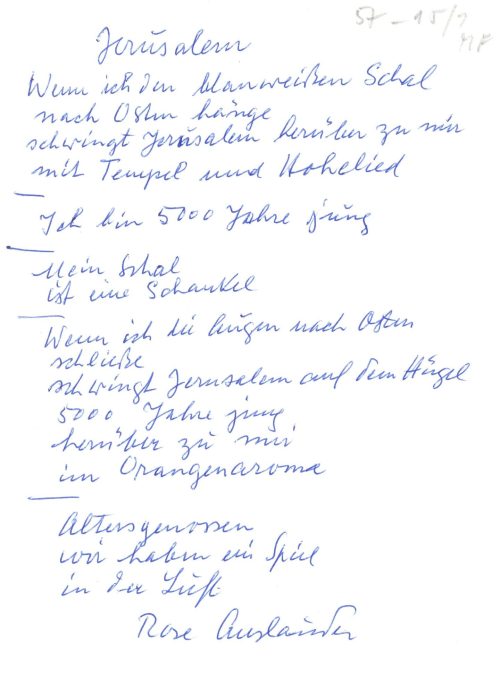 57-15/1
MF
Jerusalem
Wenn ich den blauweißen Schal
nach Osten hänge
schwingt Jerusalem herüber zu mir
mit Tempel und Hohelied
Ich bin 5000 Jahre jung
Mein Schal
ist eine Schaukel
Wenn ich die Augen nach Osten
schließe
schwingt Jerusalem auf dem Hügel
5000 Jahre jung
herüber zu mir
im Orangenaroma
Altersgenossen
wir haben ein Spiel
in der Luft
Rose Ausländer